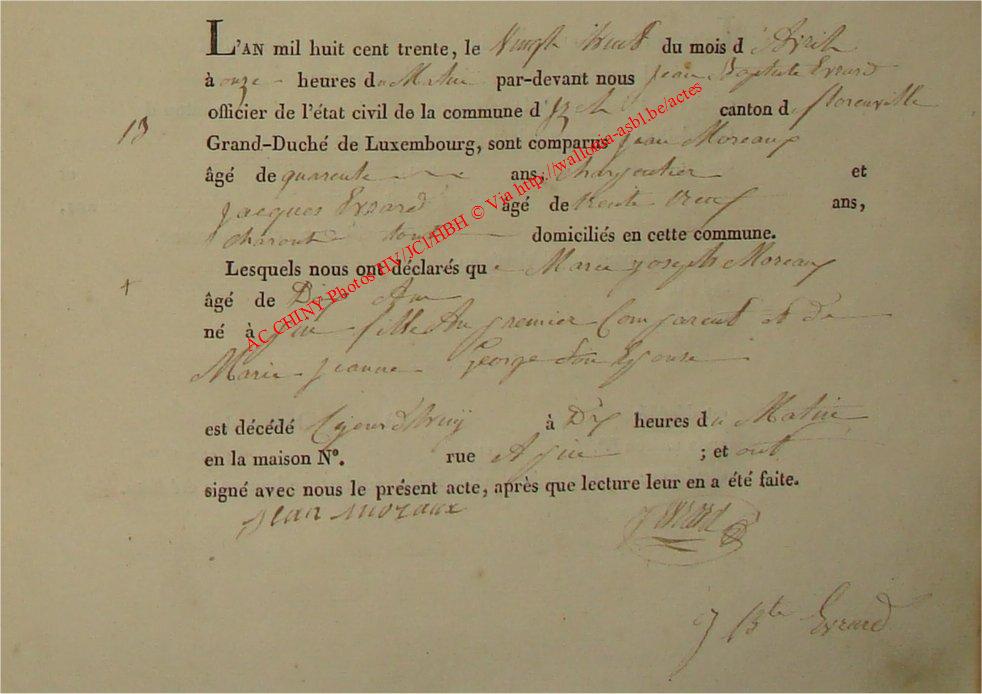 L'AN mil huit cent trente, le Vingt du mois d'Avril
à onze heures du Matin par-devant nous Jean Baptiste Evrard
officier de l'état civil de la commune d'Izel canton de florenville
13
Grand-Duché de Luxembourg, sont comparus Jean Moreaux
âgé de quarente ans, charpentier et
Jacques Evrard âgé de trente neuf ans,
domiciliés en cette commune.
Lesquels nous ont déclarés que Marie Joseph Moreaux
âgé de Dix An
né à fille du premier Comparent et de
Marie Jeanne George Son Epouse
est décédé à Dix heures du Matin
en la maison N°. rue ; et ont
signé avec nous le présent acte, après que lecture leur en a été faite.
jean moraux J Evrard
J Bte Evrard
AC CHINY Photos HV/JCI/HBH © Via http://wallonia-asbl.be/actes